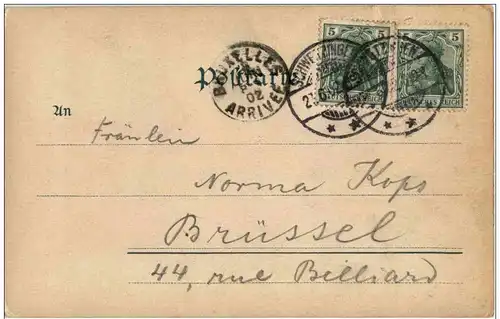 5 5
SCHWETZINGEN
BRUXELLES
02
ARRIVEE
Postkarte
An
Fräulein
Norma Kops
Brüssel
44, rue Billiard